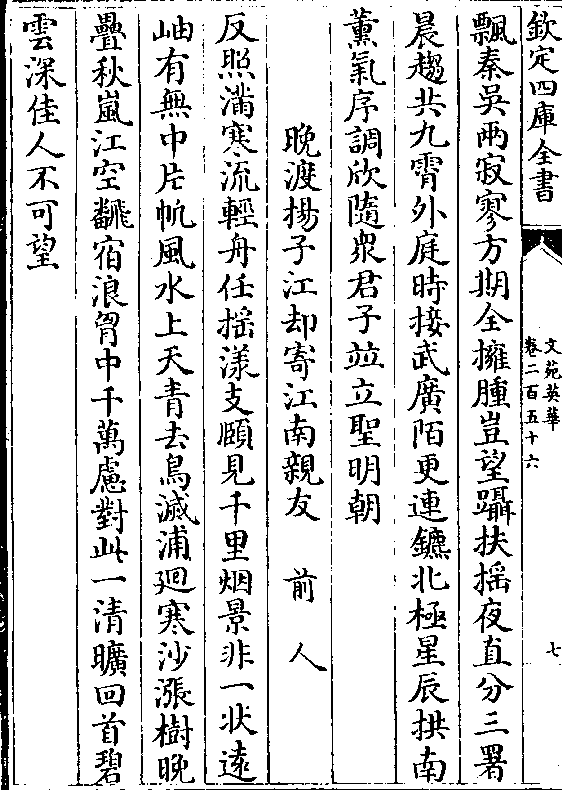 欽定四庫全書
文苑英華
卷二百五十六
七
飄秦吳兩寂寥方期全擁腫豈望躡扶揺夜直分三署
晨趨共九霄外庭時接武廣陌更連鑣北極星辰拱南
薰氣序調欣隨衆君子並立聖明朝
晚渡揚子江却寄江南親友 前人
反照滿寒流輕舟任揺漾支頤見千里烟景非一狀逺
岫有無中片帆風水上天青去鳥滅浦廻寒沙漲樹晚
疊秋嵐江空翻宿浪胷中千萬慮對此一清曠回首碧
雲深佳人不可望